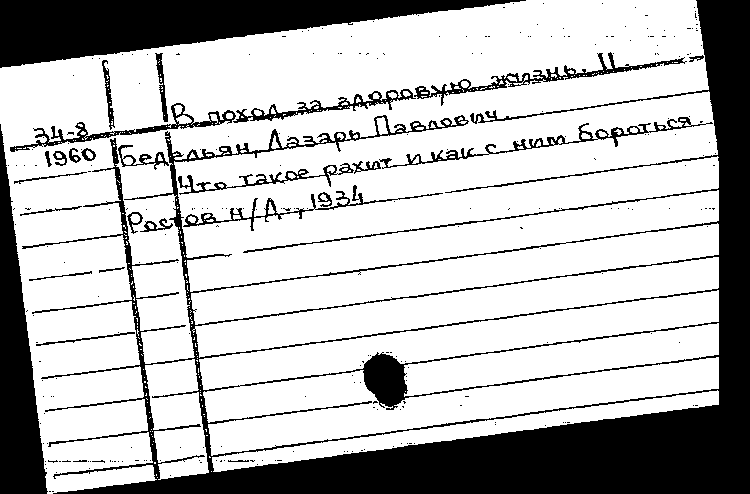 В поход за здоровую жизнь. II.
34-8
1960 Бедельян, Лазарь Павлович.
Что такое рахит и как с ним бороться.
Ростов н/Д., 1934